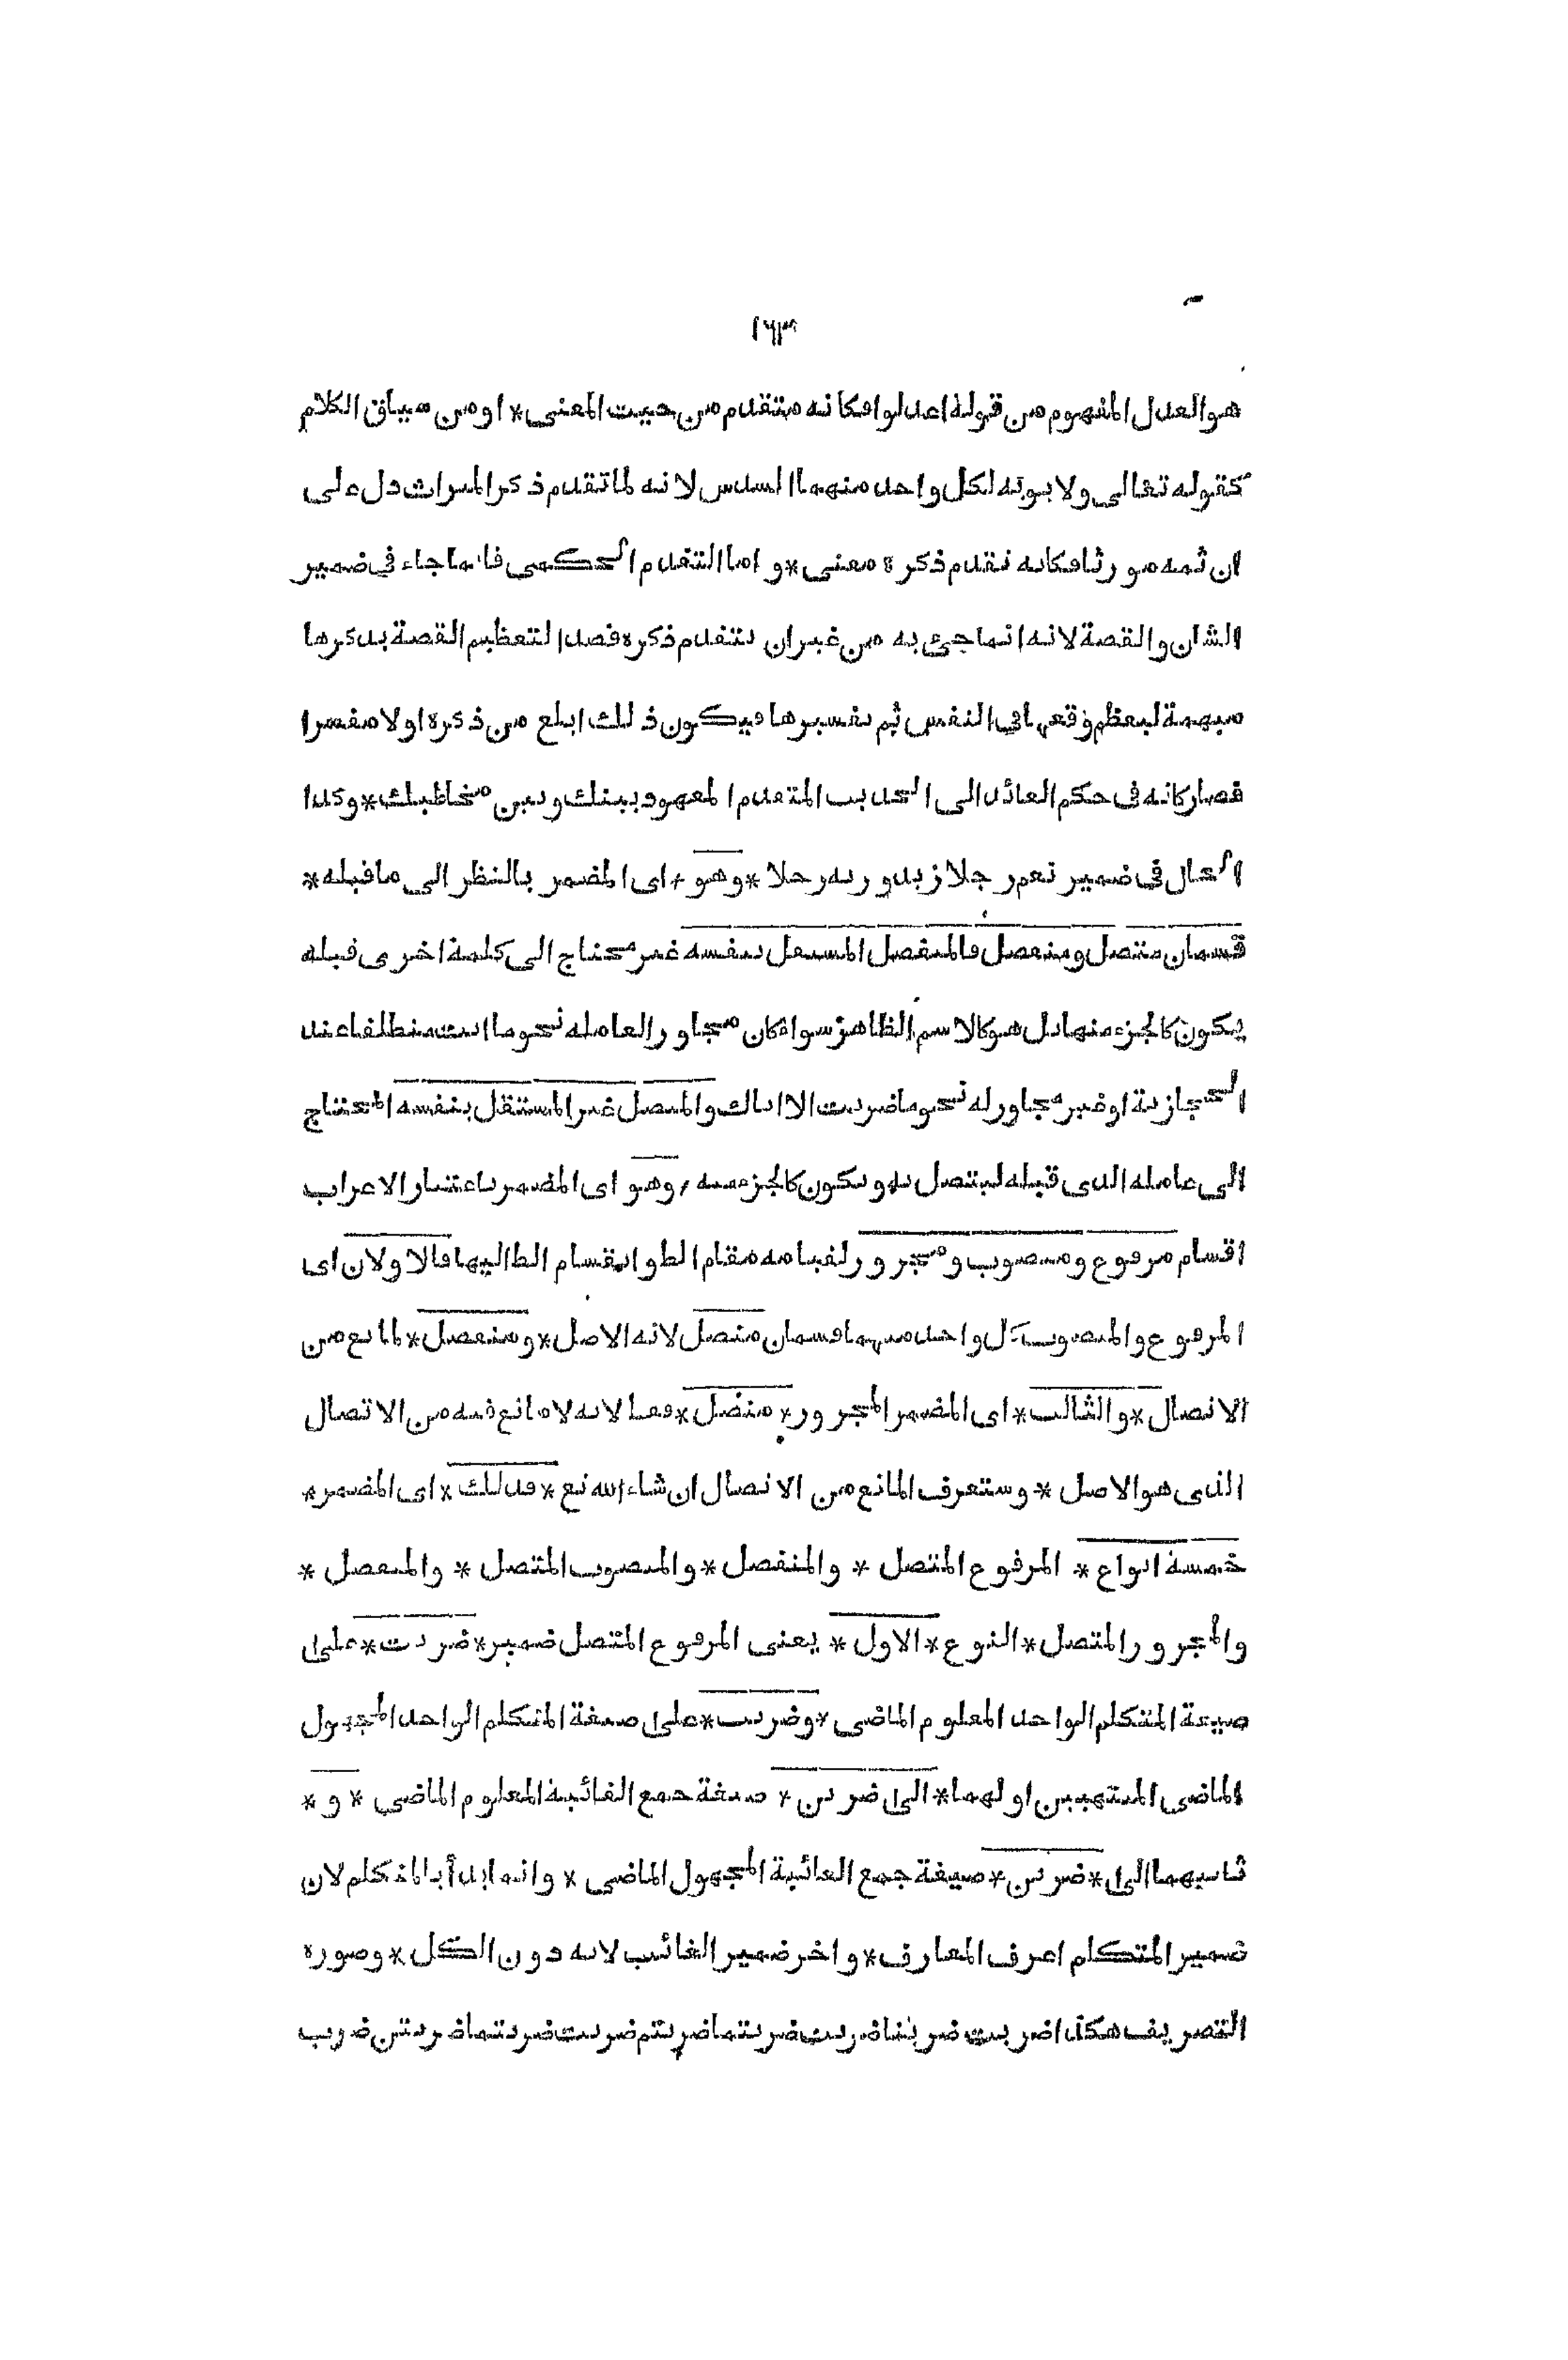 ١٦٣
هو العدل المفهوم من قوله اعدلوا فكانه متقدم من حيث المعنى * او من سياق الكلام
كقوله تعالى ولا بويه لكل واحد منهما السدس لانه لما تقدم ذكر الميراث دل على
ان ثمه مورثا فكانه تقدم ذكره معنى * و اما التقدم الحكمى فانما جاء فى ضمير
الشان والقصة لانه انما جئ به من غير ان يتقدم ذكره قصدا لتعظيم القصة بذكرها
مبهمة ليعظم وقعها فى النفس ثم تفسيرها فيكون ذلك ابلغ من ذكره اولا مفسرا
فصار كانه فى حكم العائد الى الحديث المتقدم المعهود بينك وبين مخاطبك * وكذا
الحال فى ضمير نعم رجلا زيد و ربه رجلا * وهو * اى المضمر بالنظر الى ما قبله *
قسمان متصل ومنفصل فالمنفصل المستقل بنفسه غير محتاج الى كلمة اخرى قبله
يكون كالجزء منها بل هو كالاسم الظاهر سواء كان مجاورا لعامله نحو ما انت منطلقا عند
الحجازية او غير مجاور له نحو ما ضربت الا اياك والمتصل غير المستقل بنفسه المحتاج
الى عامله الذى قبله ليتصل به و يكون كالجزء منه , وهو اى المضمر باعتبار الاعراب
اقسام مرفوع ومنصوب ومجرور لقيامه مقام الظ و انقسام الظ اليها فالاولان اى
المرفوع والمنصوب كل واحد منهما قسمان متصل لانه الاصل * ومنفصل * لمانع من
الاتصال * والثالث * اى المضمر المجرور * متصل * فقط لانه لا مانع فيه من الاتصال
الذى هو الاصل * وستعرف المانع من الاتصال ان شاء الله تع * فذلك * اى المضمر *
خمسة انواع * المرفوع المتصل * والمنفصل * والمنصوب المتصل * والمنفصل *
والمجرور المتصل * النوع * الاول * يعنى المرفوع المتصل ضمير * ضربت * على
صيغة المتكلم الواحد المعلوم الماضى * وضربت * على صيغة المتكلم الواحد المجهول
الماضى المنتهيين اولهما * الى ضربن * صيغة جمع الغائبة المعلوم الماضى * و *
ثانيهما الى * ضربن * صيغة جمع الغائبة المجهول الماضى * وانما بدأ بالمتكلم لان
ضمير المتكلم اعرف المعارف * واخر ضمير الغائب لانه دون الكل * وصورة
التصريف هكذا ضربت ضربنا ضربت ضربتما ضربتم ضربت ضربتما ضربتن ضرب